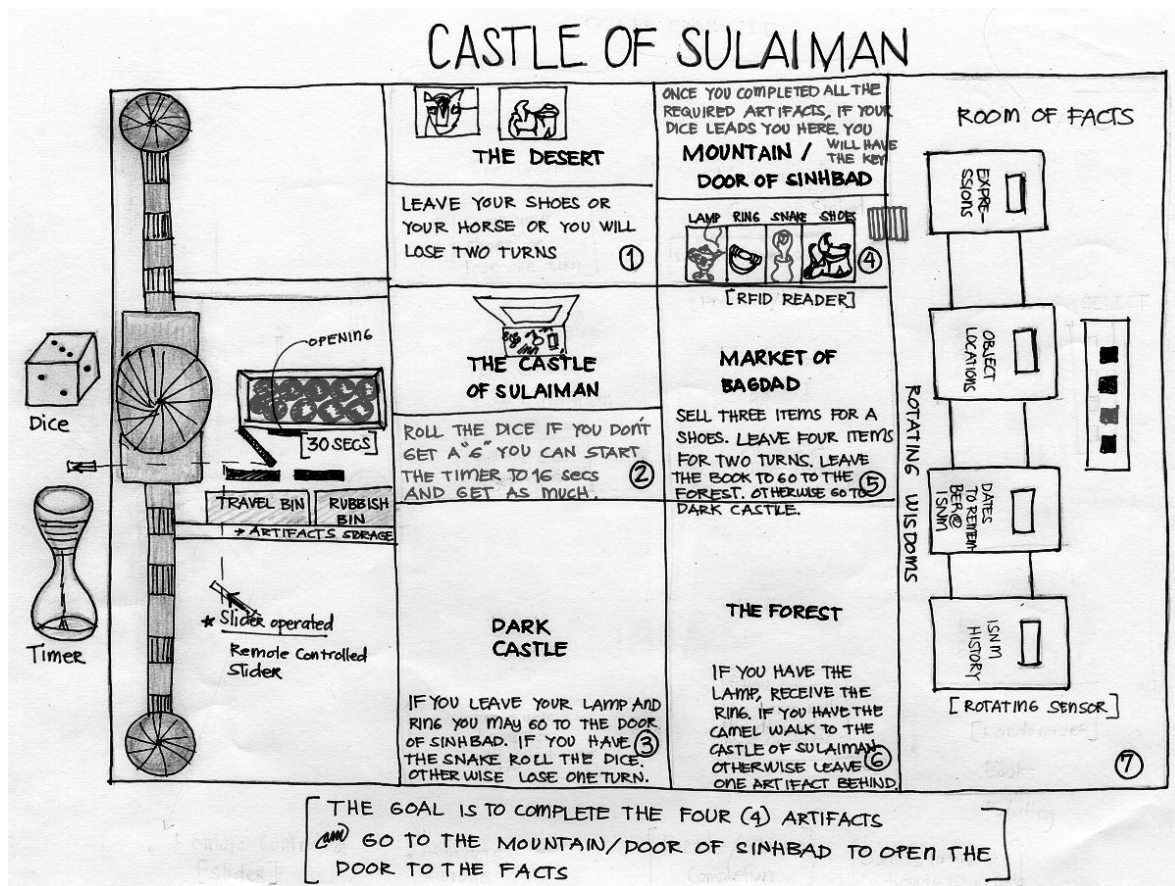 CASTLE OF SULAIMAN
Dice
Timer
OPENING
[30 SECS]
TRAVEL BIN
RUBBISH
BIN
→ ARTIFACTS STORAGE
* Slider operated
Remote Controlled
Slider
THE DESERT
LEAVE YOUR SHOES OR
YOUR HORSE OR YOU WILL
LOSE TWO TURNS
1
THE CASTLE
OF SULAIMAN
ROLL THE DICE IF YOU DON'T
GET A "6" YOU CAN START
THE TIMER TO 16 SECS
AND GET AS MUCH.
2
DARK
CASTLE
IF YOU LEAVE YOUR LAMP AND
RING YOU MAY GO TO THE DOOR
OF SINHBAD. IF YOU HAVE
THE SNAKE ROLL THE DICE.
OTHERWISE LOSE ONE TURN.
3
ONCE YOU COMPLETED ALL THE
REQUIRED ARTIFACTS, IF YOUR
DICE LEADS YOU HERE. YOU
WILL HAVE
THE KEY
MOUNTAIN /
DOOR OF SINHBAD
LAMP RING SNAKE SHOES
4
[RFID READER]
MARKET OF
BAGDAD
SELL THREE ITEMS FOR A
SHOES. LEAVE FOUR ITEMS
FOR TWO TURNS. LEAVE
THE BOOK TO GO TO THE
FOREST. OTHERWISE GO TO
DARK CASTLE.
5
THE FOREST
IF YOU HAVE THE
LAMP, RECEIVE THE
RING. IF YOU HAVE THE
CAMEL WALK TO THE
CASTLE OF SULAIMAN
OTHERWISE LEAVE
ONE ARTIFACT BEHIND.
6
ROOM OF FACTS
EXPRE-
SSIONS
OBJECT
LOCATIONS
DATES
TO REMEM
BER @
ISNIM
ISNIM
HISTORY
ROTATING WISDOMS
[ROTATING SENSOR]
7
[THE GOAL IS TO COMPLETE THE FOUR (4) ARTIFACTS
GO TO THE MOUNTAIN/DOOR OF SINHBAD TO OPEN THE
DOOR TO THE FACTS]